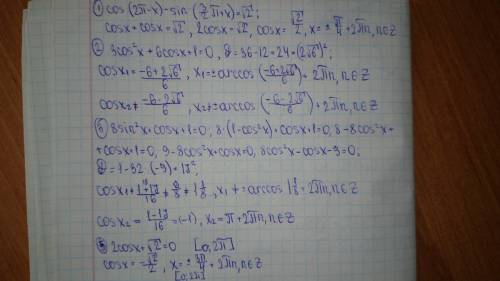 ① cos(2π-x)-sin(π/2+x)=√2;
cosx+cosx=√2, 2cosx=√2, cosx=√2/2, x=±π/4+2πn, n∈Z
② 3cos²x+6cosx+1=0, D=36-12=24=(2√6)²;
cosx₁=(-6+2√6)/6, x₁=±arccos((-6+2√6)/6)+2πn, n∈Z
cosx₂≠(-6-2√6)/6, x₂≠±arccos((-6-2√6)/6)+2πn, n∈Z
8sin²x+cosx+1=0, 8·(1-cos²x)+cosx+1=0, 8-8cos²x+
+cosx+1=0, 9-8cos²x+cosx=0, 8cos²x-cosx-9=0;
cosx₂=(1-17)/16=(-1), x₂=π+2πn, n∈Z
2cosx+√2=0 [0,2π]
cosx=-√2/2, x=±3π/4+2πn, n∈Z
[0,2π]